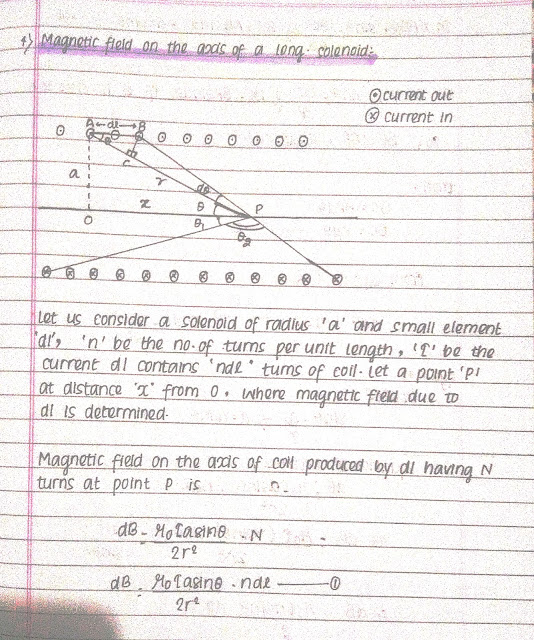 4) Magnetic field on the axis of a long solenoid:
⊙ current out
⊗ current in
A ←dl→ B
θ
C
a
r
dθ
x
θ
P
O
θ1
θ2
Let us consider a solenoid of radius 'a' and small element
'dl', 'n' be the no. of turns per unit length, 'I' be the
current dl contains 'ndl' turns of coil. Let a point 'P'
at distance 'x' from O, where magnetic field due to
dl is determined.
Magnetic field on the axis of coil produced by dl having N
turns at point P is
dB = μ0Iasinθ · N
2r²
dB = μ0Iasinθ · ndl ——— ①
2r²